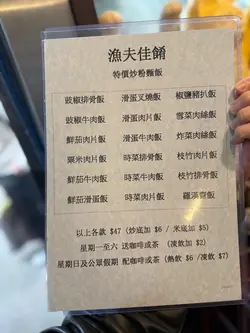 漁夫佳餚
特價炒粉麵飯
豉椒排骨飯 滑蛋叉燒飯 椒鹽豬扒飯
豉椒牛肉飯 滑蛋肉片飯 雪菜肉絲飯
鮮茄肉片飯 滑蛋牛肉飯 炸菜肉絲飯
粟米肉片飯 時菜排骨飯 枝竹肉片飯
鮮茄牛肉飯 時菜牛肉飯 枝竹排骨飯
鮮茄滑蛋飯 時菜肉片飯 羅漢齋飯
以上各款 $47 (炒底加 $6 / 米底加 $5)
星期一至六 送咖啡或茶 (凍飲加 $2)
星期日及公眾假期 配咖啡或茶 (熱飲 $6 /凍飲 $7)